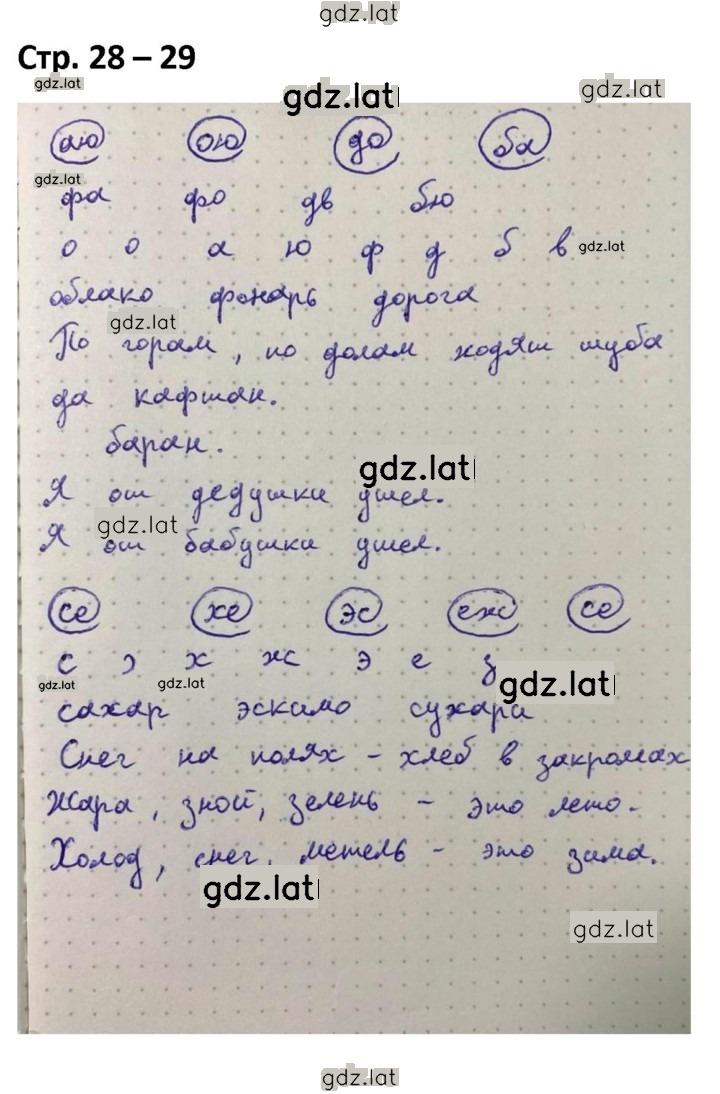 gdz.lat
Стр. 28 – 29
gdz.lat gdz.lat gdz.lat
аю ою до ба
gdz.lat
фа фо дв бю
о о а ю ф д б в gdz.lat
облако фонарь дорога
gdz.lat
По горам, по долам ходят шуба
да кафтан.
баран.
gdz.lat
Я от дедушки ушел.
gdz.lat
Я от бабушки ушел.
се хе эс еж се
с э х ж э е з
gdz.lat gdz.lat gdz.lat
сахар эскимо сухари
Снег на полях – хлеб в закромах
Жара, зной, зелень – это лето.
Холод, снег, метель – это зима.
gdz.lat
gdz.lat
gdz.lat